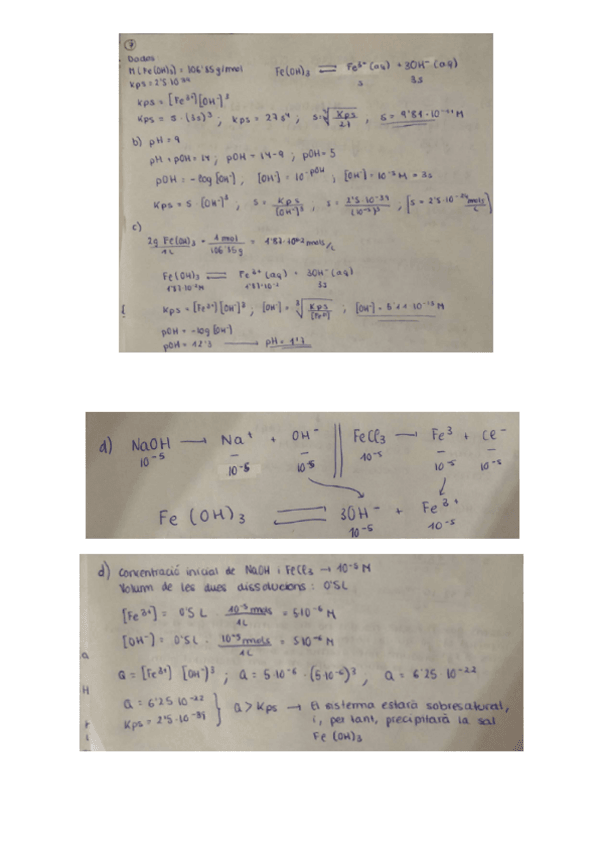 7
Dades
M(Fe(OH)3) = 106'85 g/mol
Kps = 2'5·10-39
Fe(OH)3 ⇌ Fe3+(aq) + 3OH-(aq)
s 3s
Kps = [Fe3+][OH-]3
Kps = s·(3s)3 ; Kps = 27s4 ; s = ∜(Kps/27) , s = 9'81·10-11 M
b) pH = 9
pH + pOH = 14 ; pOH = 14-9 ; pOH = 5
pOH = -log [OH-] ; [OH-] = 10-pOH ; [OH-] = 10-5 M = 3s
Kps = s·[OH-]3 , s = Kps/[OH-]3 , s = 2'5·10-39/(10-5)3 , [s = 2'5·10-24 mols/L]
c)
2g Fe(OH)3/1L · 1 mol/106'85g = 1'87·10-2 mols/L
Fe(OH)3 ⇌ Fe3+(aq) + 3OH-(aq)
1'87·10-2M 1'87·10-2 3s
Kps = [Fe3+][OH-]3 ; [OH-] = ∛(Kps/[Fe3+]) ; [OH-] = 5'11·10-13 M
pOH = -log [OH-]
pOH = 12'3 → pH = 1'7
d) NaOH → Na+ + OH- || FeCl3 → Fe3 + Cl-
10-5 10-5 10-5 10-5 10-5 10-5
Fe(OH)3 ⇌ 3OH- + Fe3+
10-5 10-5
d) Concentració inicial de NaOH i FeCl3 → 10-5 M
Volum de les dues dissolucions: 0'5L
[Fe3+] = 0'5 L · 10-5 mols/1L = 5·10-6 M
[OH-] = 0'5L · 10-5 mols/1L = 5·10-6 M
Q = [Fe3+] [OH-]3 ; Q = 5·10-6 · (5·10-6)3 , Q = 6'25·10-22
Q = 6'25·10-22
Kps = 2'5·10-39
Q > Kps → El sistema estarà sobresaturat,
i, per tant, precipitarà la sal
Fe(OH)3